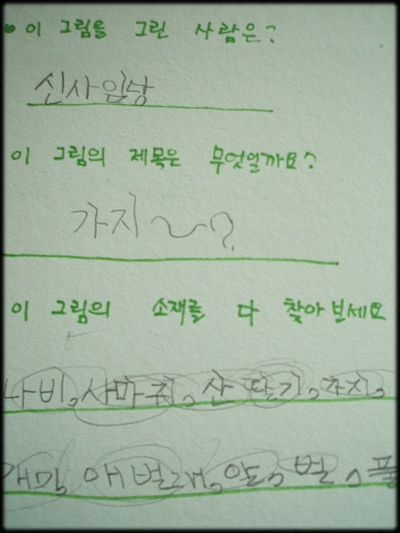 이 그림을 그린 사람은?
신사임당
이 그림의 제목은 무엇일까요?
가지~?
이 그림의 소재를 다 찾아보세요
나비, 사마귀, 산딸기, 가지,
개미, 애벌레, 벌, 풀